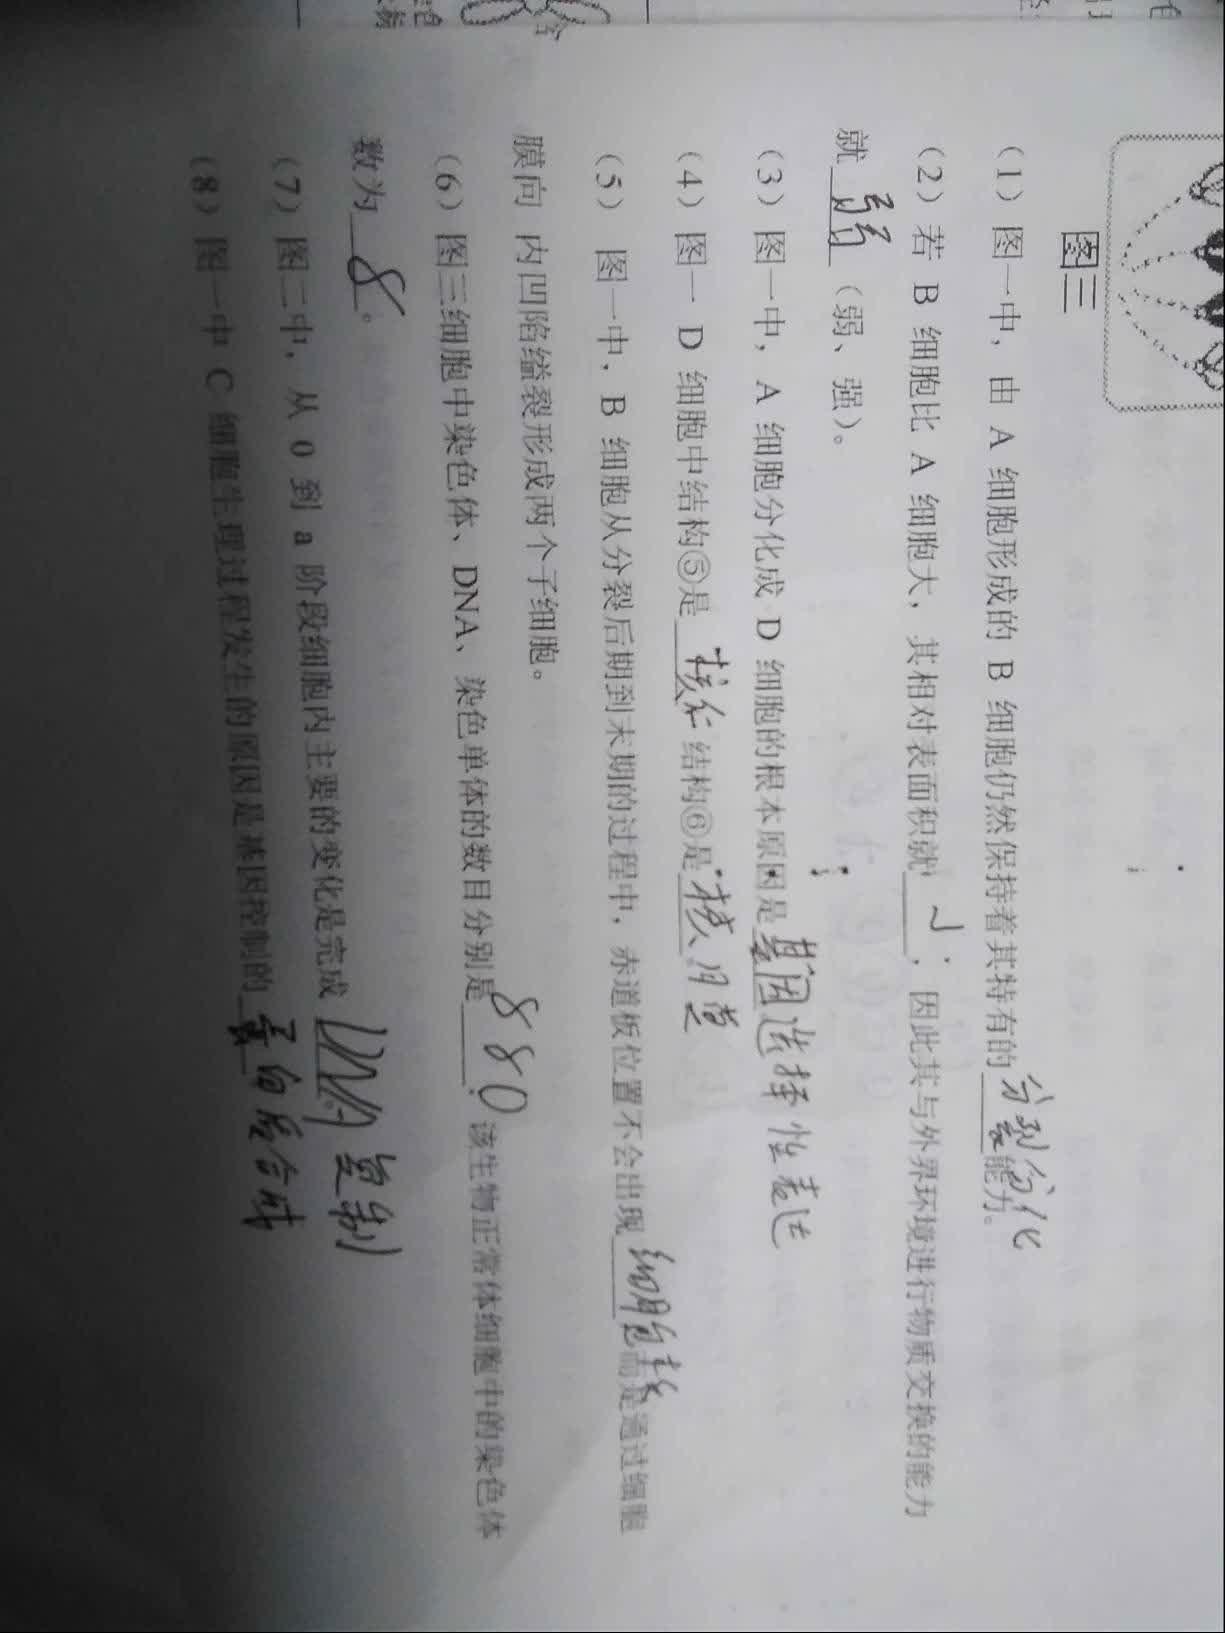 图三
(1) 图一中，由 A 细胞形成的 B 细胞仍然保持着其特有的分裂分化能力。
(2) 若 B 细胞比 A 细胞大，其相对表面积就小；因此其与外界环境进行物质交换的能力
就弱（弱、强）。
(3) 图一中，A 细胞分化成 D 细胞的根本原因是基因选择性表达
(4) 图一 D 细胞中结构⑤是核仁结构⑥是核膜
(5) 图一中，B 细胞从分裂后期到末期的过程中，赤道板位置不会出现细胞板而是通过细胞
膜向 内凹陷缢裂形成两个子细胞。
(6) 图三细胞中染色体、DNA、染色单体的数目分别是8 8 0．该生物正常体细胞中的染色体
数为8。
(7) 图二中，从 0 到 a 阶段细胞内主要的变化是完成DNA复制
(8) 图一中 C 细胞生理过程发生的原因是基因控制的蛋白质合成